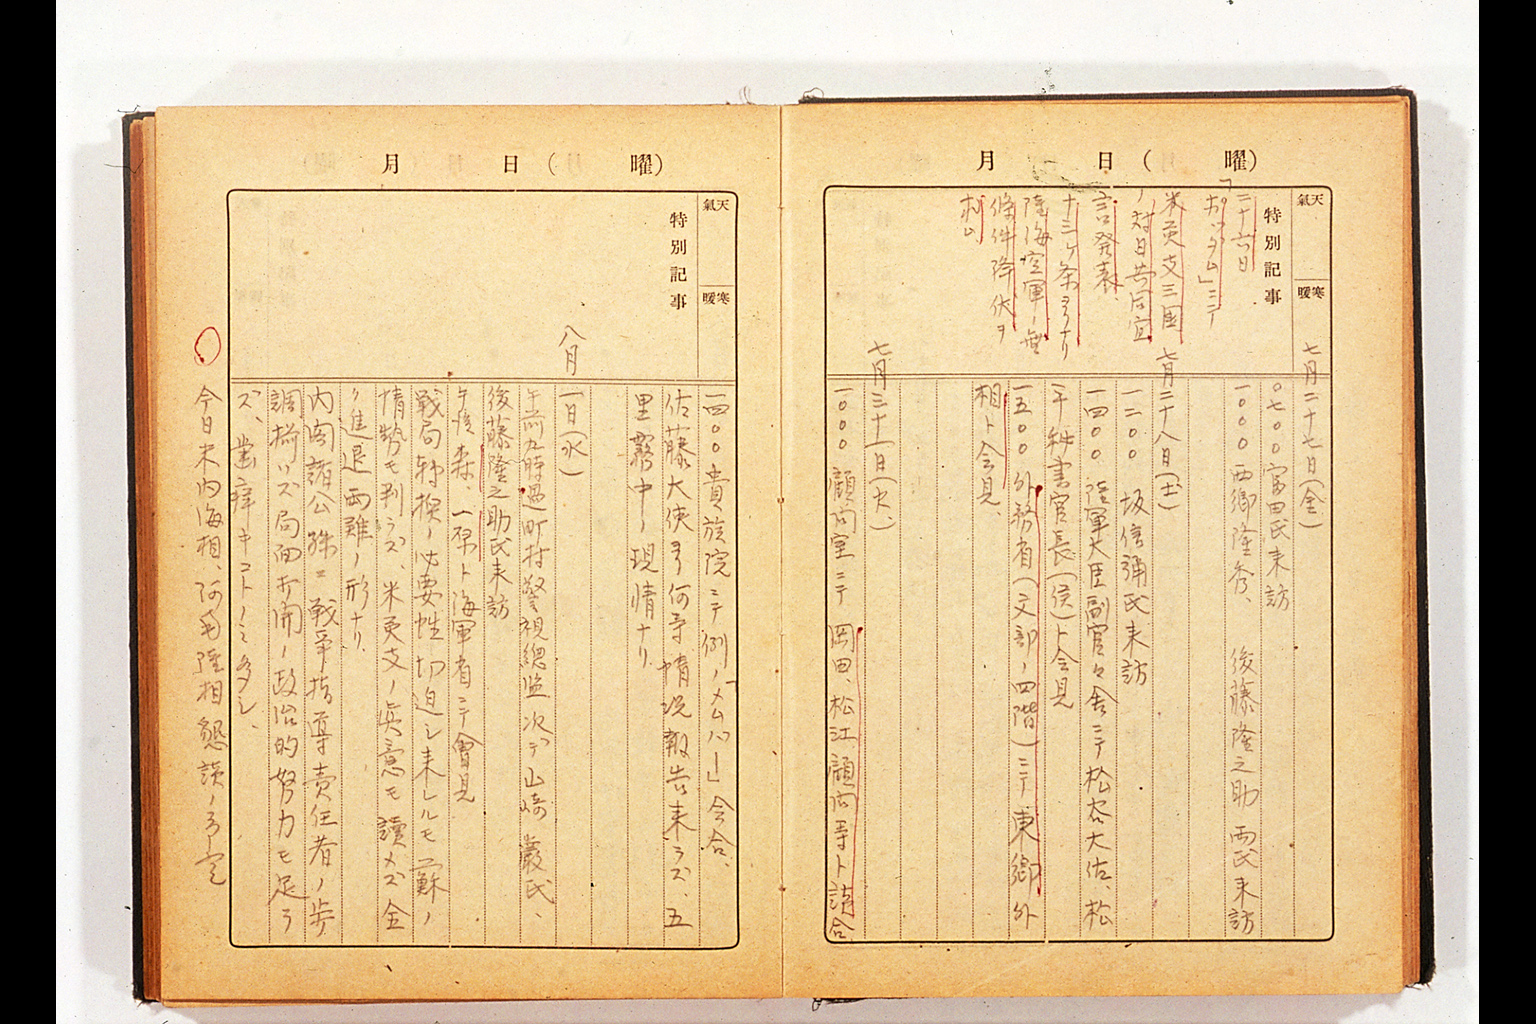 月 日 （ 曜）
天氣
寒暖
特別記事
二十六日
「ポツダム」ニテ
米英支三国
ノ対日共同宣
言発表、
十三ヶ条ヨリナリ
陸海空軍ノ無
條件降伏ヲ
七月二十七日（金）
〇七〇〇 富田氏来訪
一〇〇〇 西郷隆秀、 後藤隆之助 両氏来訪
七月二十八日（土）
一二〇〇 坂信彌氏来訪
一四〇〇 陸軍大臣副官々舎ニテ松谷大佐、松
平秘書官長（侯）ト会見
一五〇〇 外務省（文部ノ四階）ニテ東郷外
相ト会見、
七月三十一日（火）
一〇〇〇 顧問室ニテ 岡田、松江顧問等ト請合
月 日（ 曜）
天氣
寒暖
特別記事
一四〇〇 貴族院ニテ例ノメムバー」会合、
佐藤大使ヨリ何等情況報告来ラズ、五
里霧中ノ現情ナリ
八月
一日（水）
午前九時過町村警視總監次デ山崎巌氏、
後藤隆之助氏来訪
午後森、 ト海軍省ニテ會見
戦局転換ノ必要性切迫シ来レルモ蘇ノ
情勢モ判ラズ、米英支ノ真意モ讀メズ全
ク進退両難ノ形ナリ
内閣諸公殊ニ戦爭指導責任者ノ歩
調揃ハズ局面打開ノ政治的努力モ足ラ
ズ、歯痒キコトノミ多シ、
今日米内海相、阿南陸相懇談ノ予定